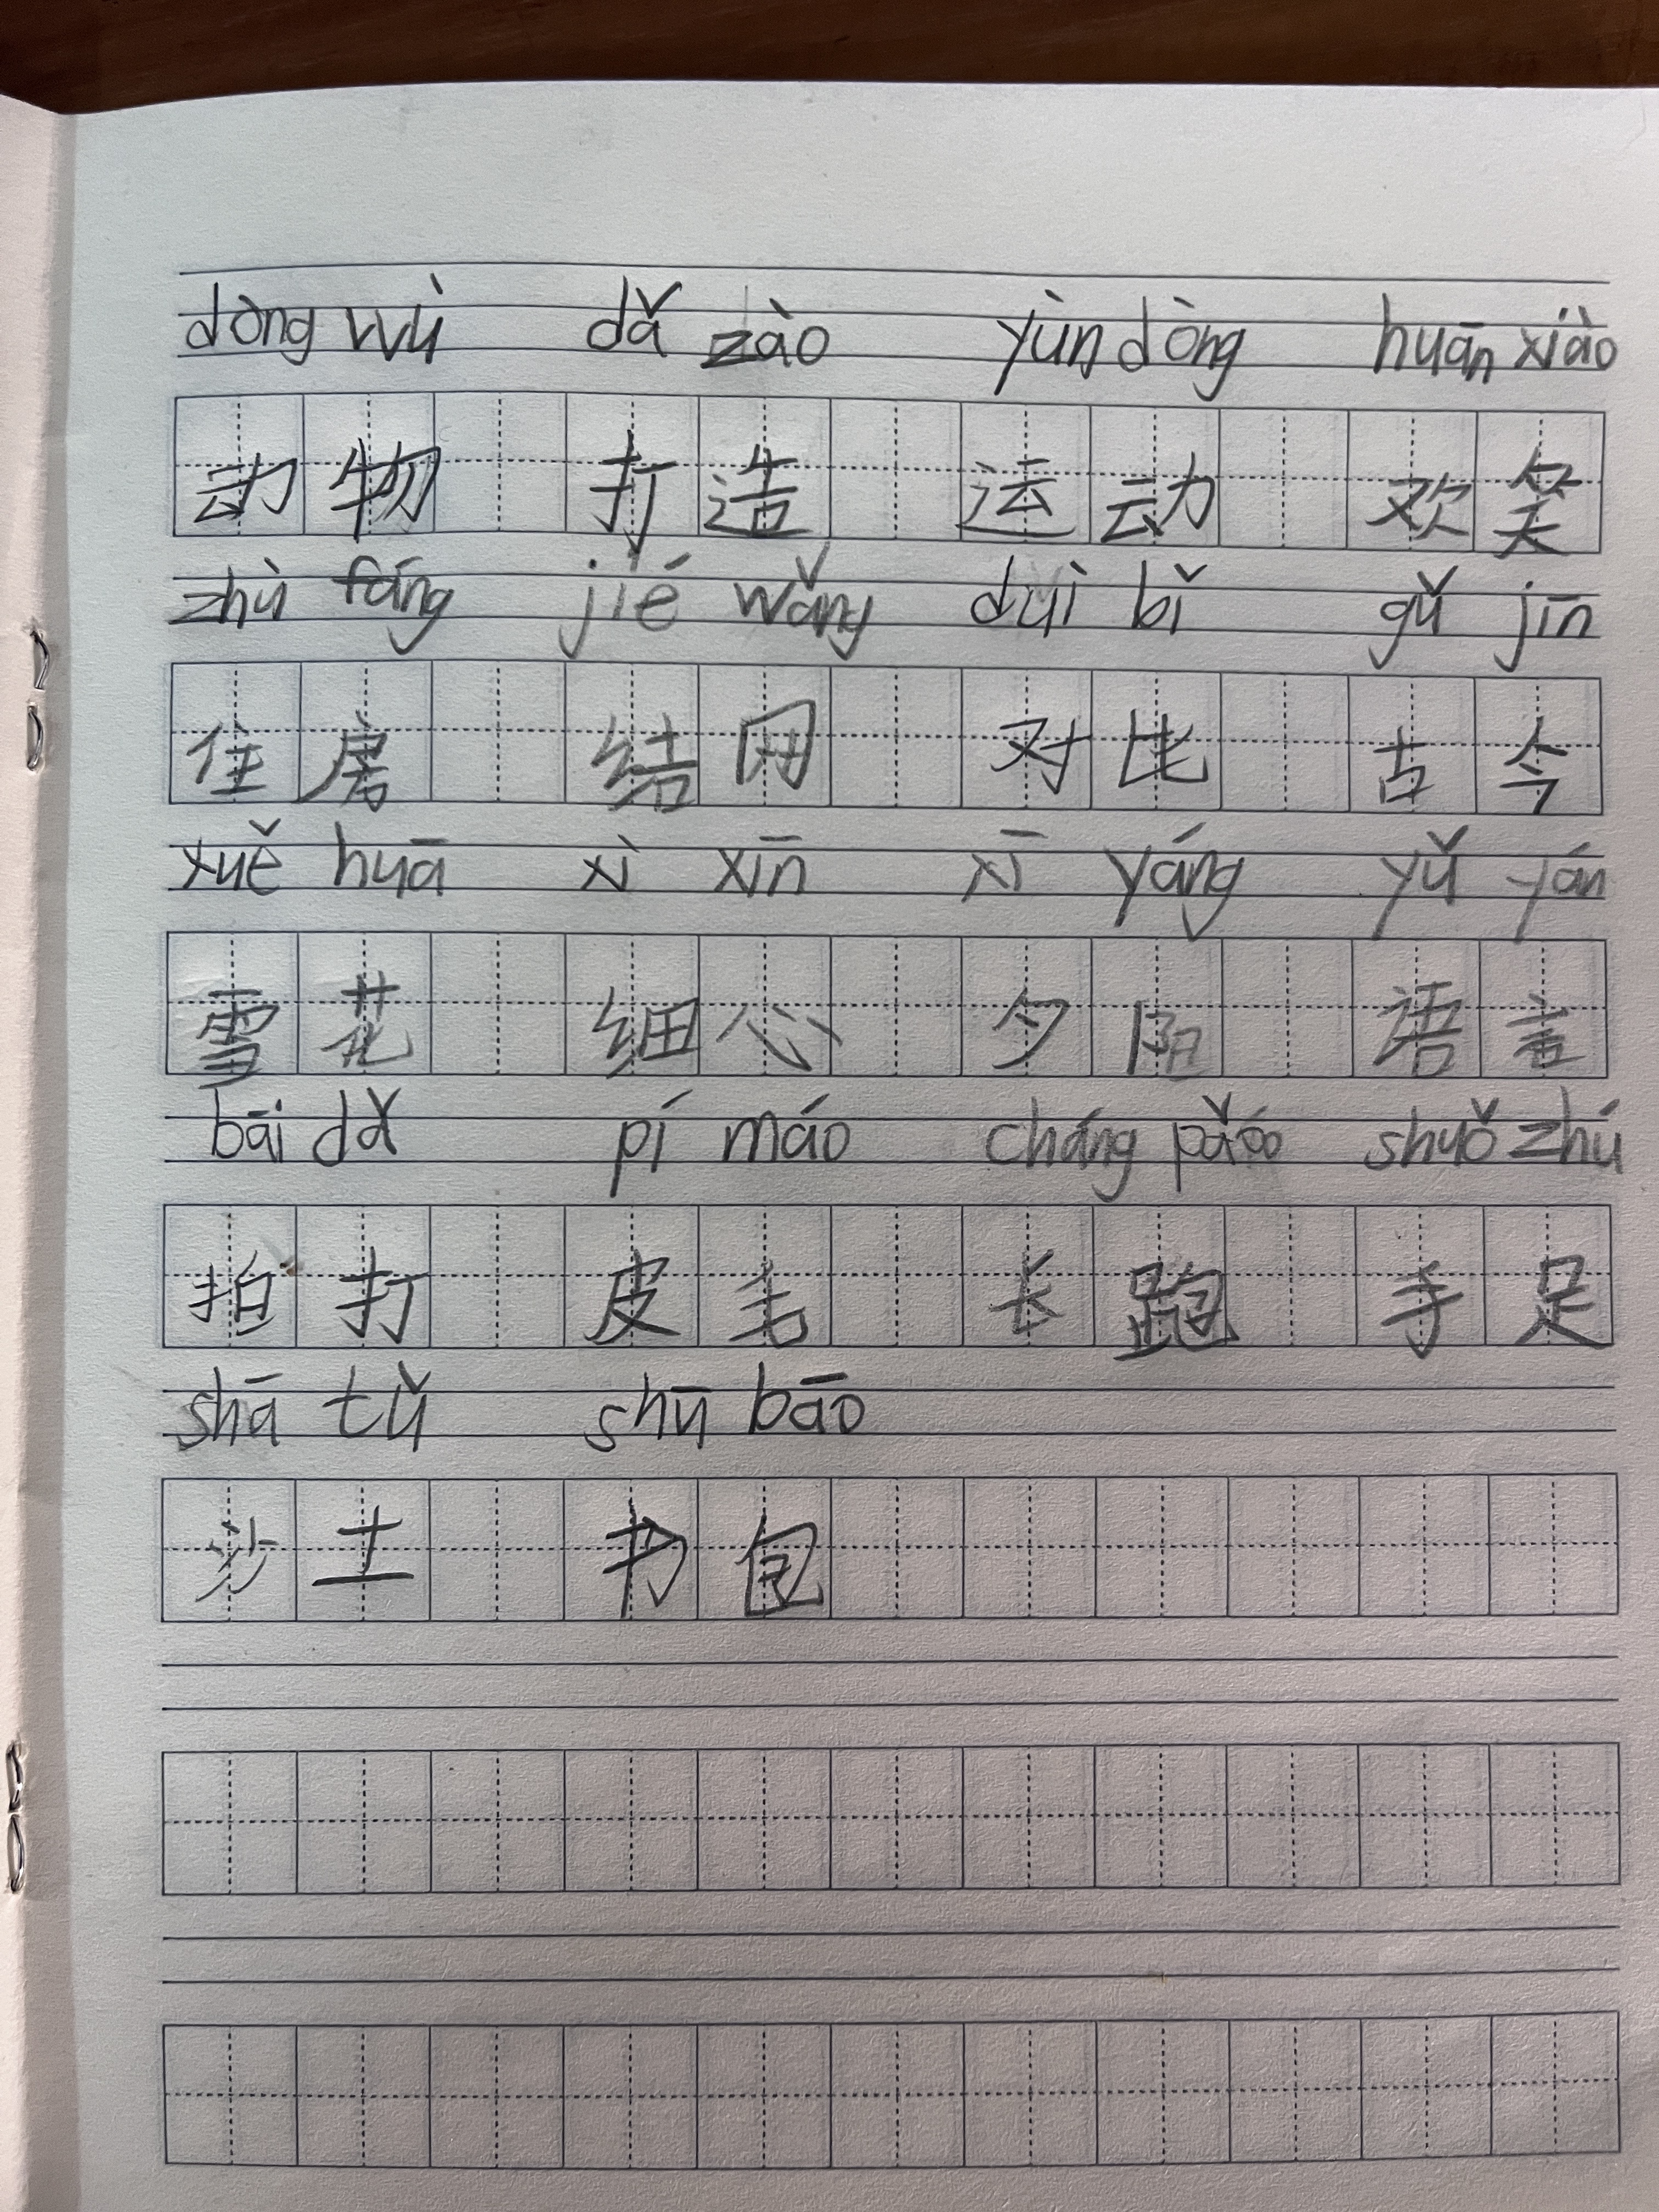 dòng wù dǎ zào yùn dòng huān xiào
动物 打造 运动 欢笑
zhù fáng jié wǎng duì bǐ gǔ jīn
住房 结网 对比 古今
xuě huā xì xīn xī yáng yǔ yán
雪花 细心 夕阳 语言
bāi dǎ pí máo cháng pǎo shuǒ zhú
拍打 皮毛 长跑 手足
shā tǔ shū bāo
沙土 书包